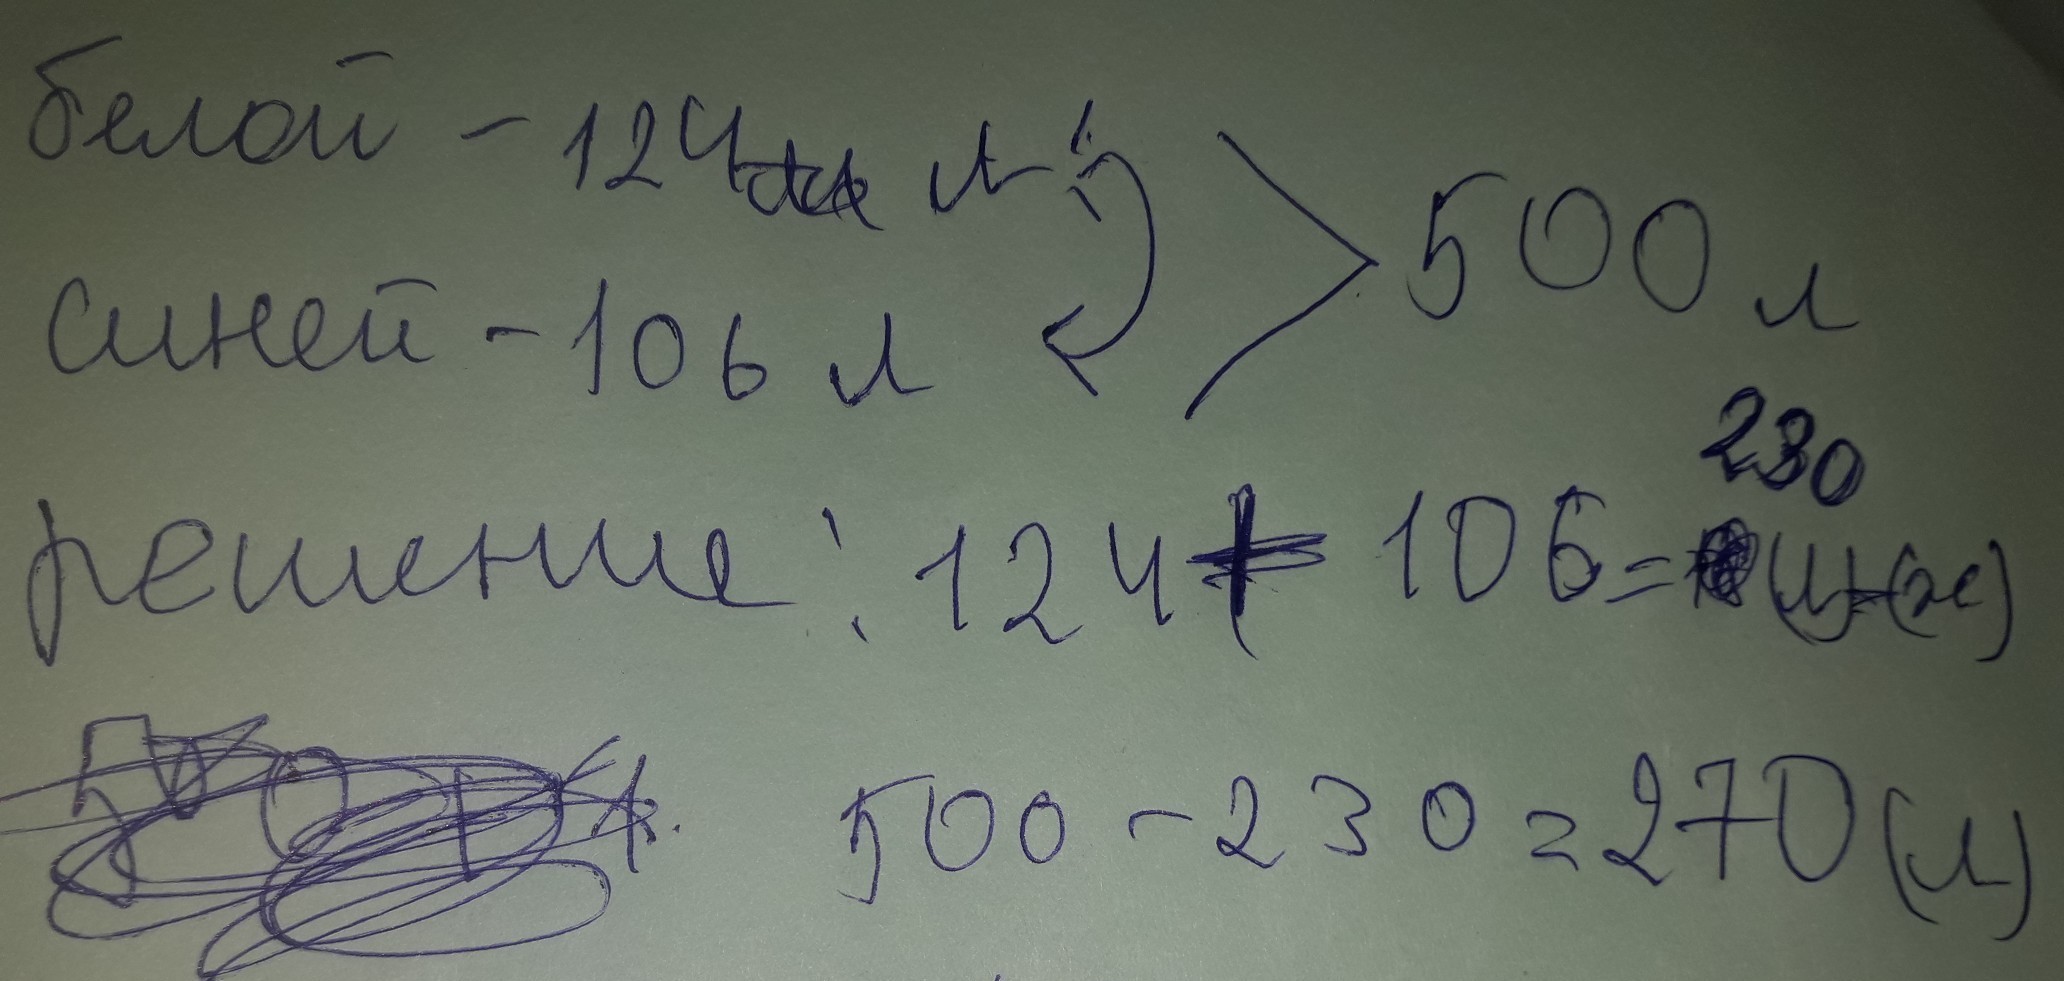 белой - 124 л
синей - 106 л
500 л
решение: 124 + 106 = 230 (л)
500 - 230 = 270 (л)